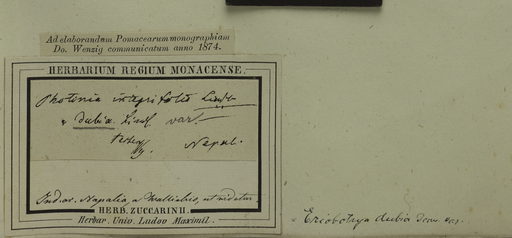 Ad elaborandum Pomacearum monographiam
Do. Wenzig communicatum anno 1874.
HERBARIUM REGIUM MONACENSE.
Photinia integrifolia Lindl
dubia Lindl var.
Nepal.
Ind. or. Napalia, a Wallichio, ut videtur.
HERB. ZUCCARINII.
Herbar. Univ. Ludov. Maximil.
Eriobotrya dubia